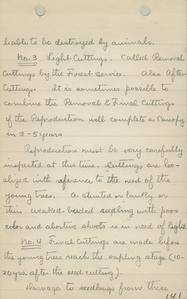 liable to be destroyed by animals.
No. 3 Light Cuttings. Called Removal
Cuttings by the Forest Service. Also After
Cuttings. It is sometimes possible to
combine the Removal & Final Cuttings
if the Reproduction will complete a Canopy
in 3-5 years
Reproduction must be very carefully
inspected at this time. Cuttings are loc-
alized with reference to the need of the
young trees. A stunted or lanky or
thin seedling with poor
color and abortive shoots is in need of light
No. 4 Final Cuttings are made before
the young trees reach the sapling stage (10-
20 yrs after the seed cutting).
Damage to seedlings from these
141